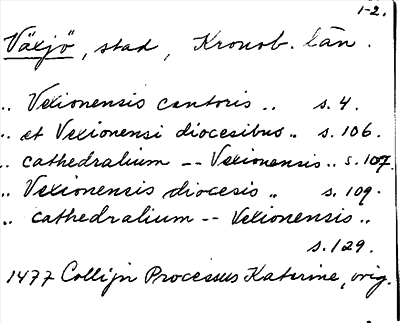 1-2.
Växjö, stad, Kronob. län.
.. Vexionensis cantoris .. s. 4.
.. et Vexionensi diocesibus .. s. 106.
.. cathedralium -- Vexionensis .. s. 107.
.. Vexionensis diocesis .. s. 109.
.. cathedralium -- Vexionensis ..
s. 129.
1477 Collijn Processus Katerine, orig.